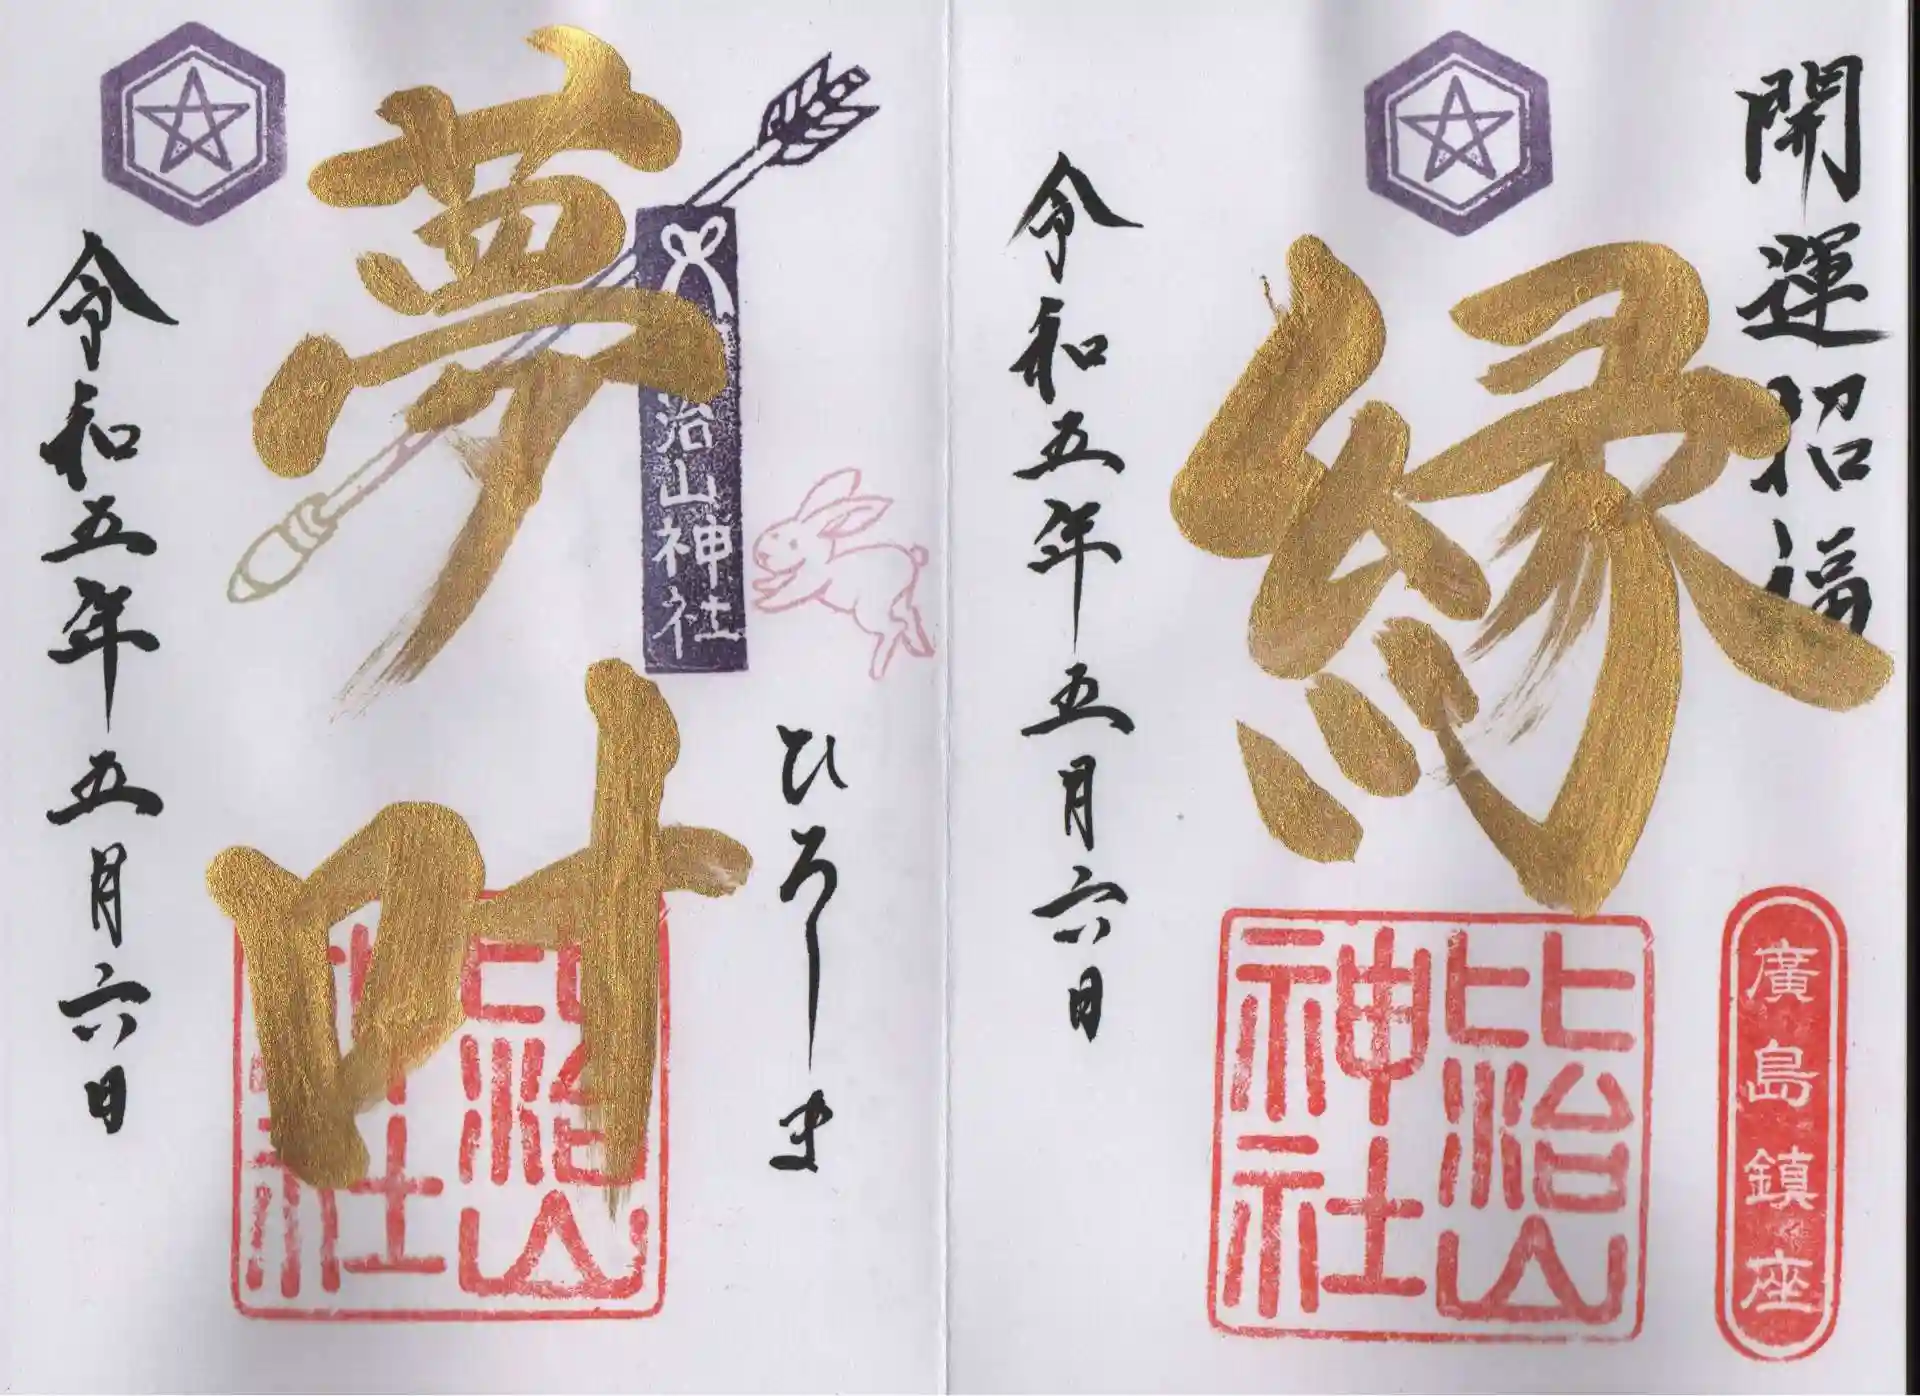 開運招福
縁
廣島鎮座
比治山
神社
令和五年五月六日
治山神社
ひろしま
夢叶
比治山
神社
令和五年五月六日